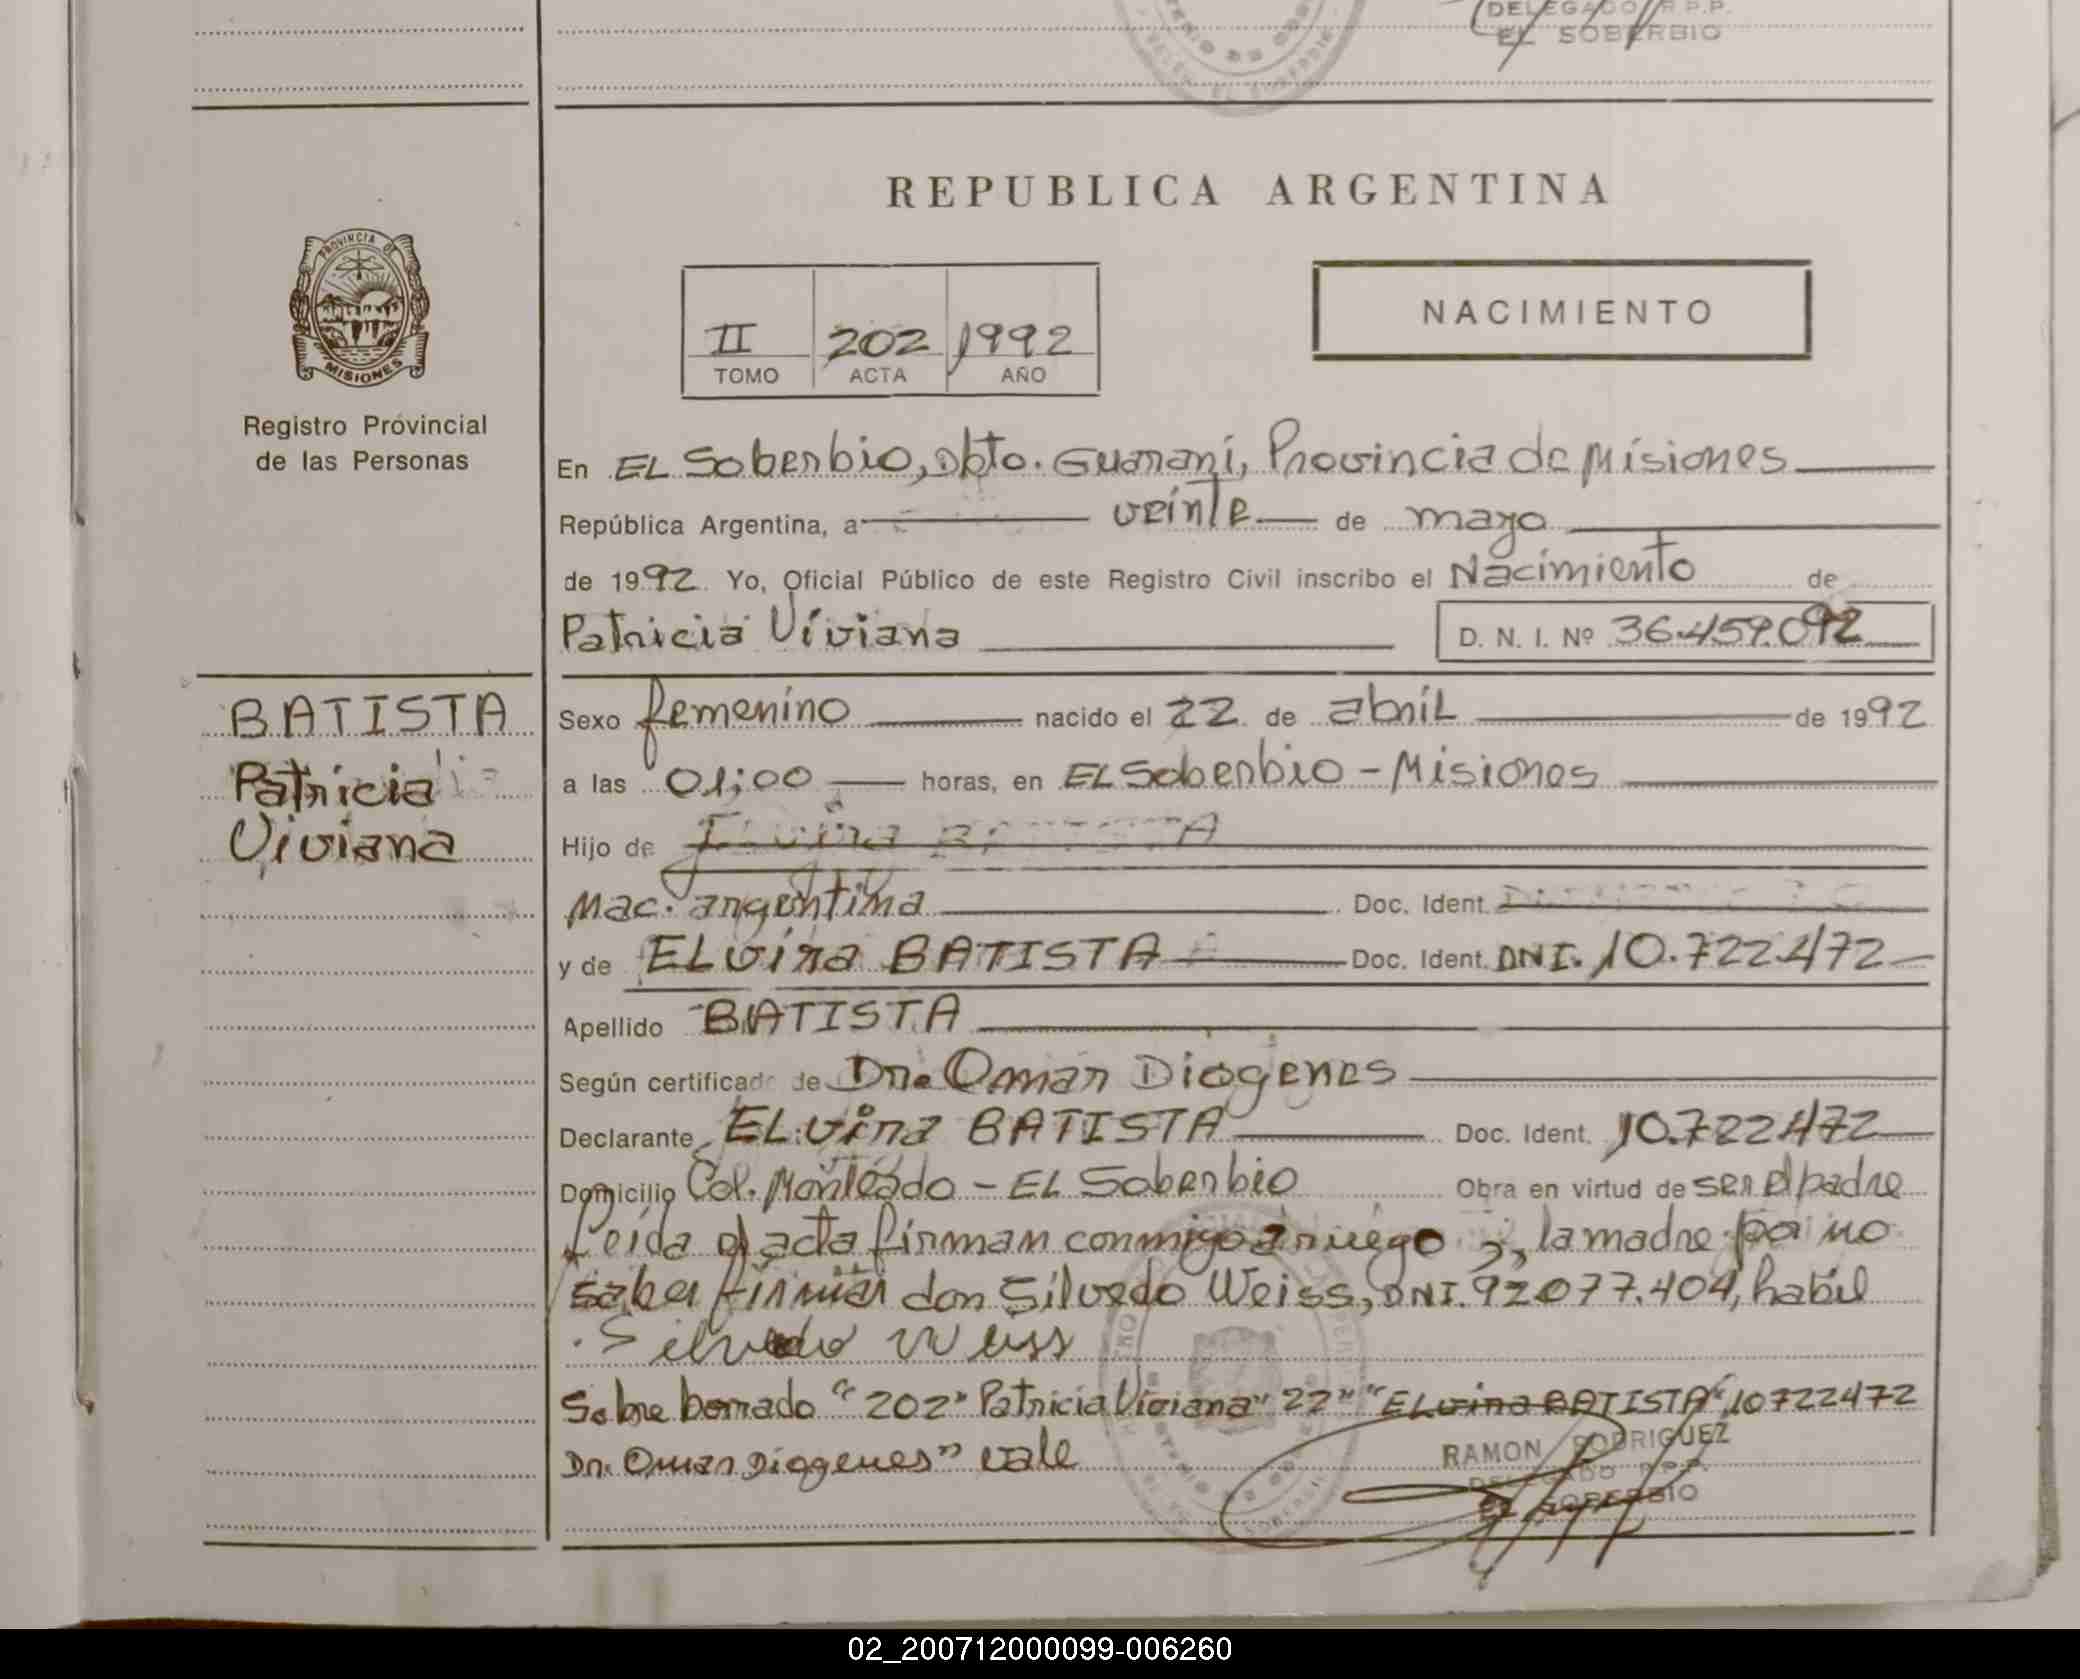 DELEGADO R.P.P.
EL SOBERBIO
REPUBLICA ARGENTINA
PROVINCIA DE
MISIONES
Registro Provincial
de las Personas
NACIMIENTO
II 202 1992
TOMO ACTA AÑO
En EL Soberbio, Dpto. Guaraní, Provincia de Misiones
República Argentina, a veinte de mayo
de 1992. Yo, Oficial Público de este Registro Civil inscribo el Nacimiento de
Patricia Viviana D. N. I. Nº 36.459.092
BATISTA
Patricia
Viviana
Sexo femenino nacido el 22 de abril de 1992
a las 01:00 horas, en EL Soberbio - Misiones
Hijo de Elvira BATISTA
Nac. argentina Doc. Ident.
y de ELvira BATISTA Doc. Ident. DNI. 10.722.472
Apellido BATISTA
Según certificado de Dr. Omar Diogenes
Declarante ELvira BATISTA Doc. Ident. 10.722.472
Domicilio Col. Monteado - EL Soberbio Obra en virtud de ser el padre
Leída el acta firman conmigo a ruego , la madre por no
saber firmar don Silvedo Weiss, DNI. 92.077.404, habil
Silvedo Weiss
Sobre borrado "202" Patricia Viviana" 22" "ELvira BATISTA" 10722472
Dr. Omar Diogenes" vale
RAMON RODRIGUEZ
DELEGADO R.P.P.
EL SOBERBIO
02_200712000099-006260